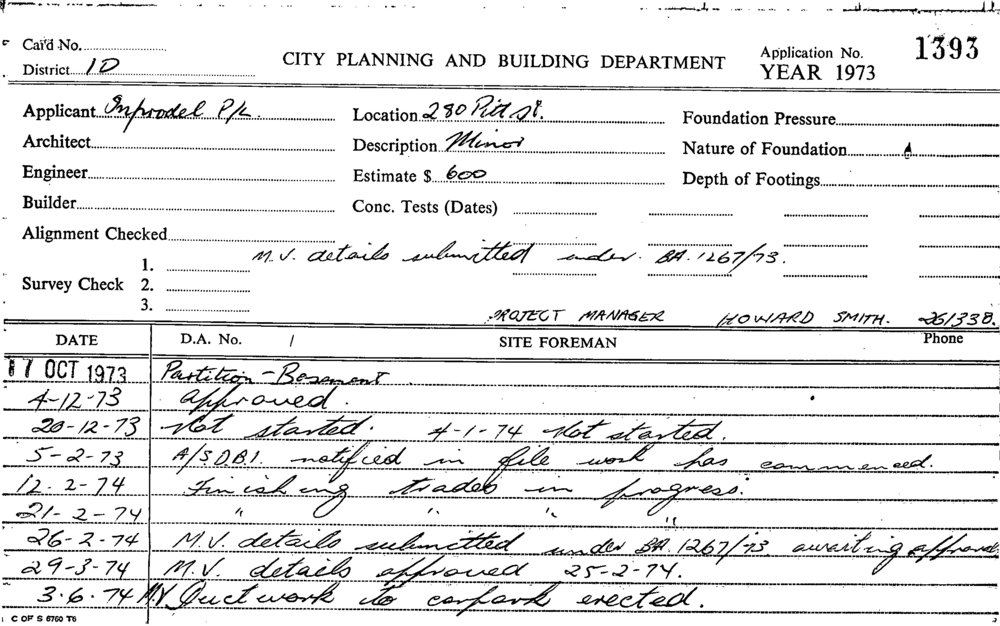 Card No.
District 10
CITY PLANNING AND BUILDING DEPARTMENT
Application No. 1393
YEAR 1973
Applicant Inprodel P/L.
Location 280 Pitt St.
Foundation Pressure
Architect
Description Minor
Nature of Foundation
Engineer
Estimate $ 600
Depth of Footings
Builder
Conc. Tests (Dates)
Alignment Checked
M.V. details submitted under BA.1267/73.
Survey Check
1.
2.
3.
PROJECT MANAGER HOWARD SMITH. 261338.
DATE D.A. No. / SITE FOREMAN Phone
17 OCT 1973 Partition - Basement
4-12-73 approved.
20-12-73 Not started. 4-1-74 Not started.
5-2-73 A/S.D.B.I. notified in file work has commenced.
12.2-74 Finishing trades in progress.
21-2-74 " " " "
26-2-74 M.V. details submitted under BA.1267/73 awaiting approval
29-3-74 M.V. details approved 25-2-74.
3.6.74 M.V Ductwork to carpark erected.
C OF S 6760 T6